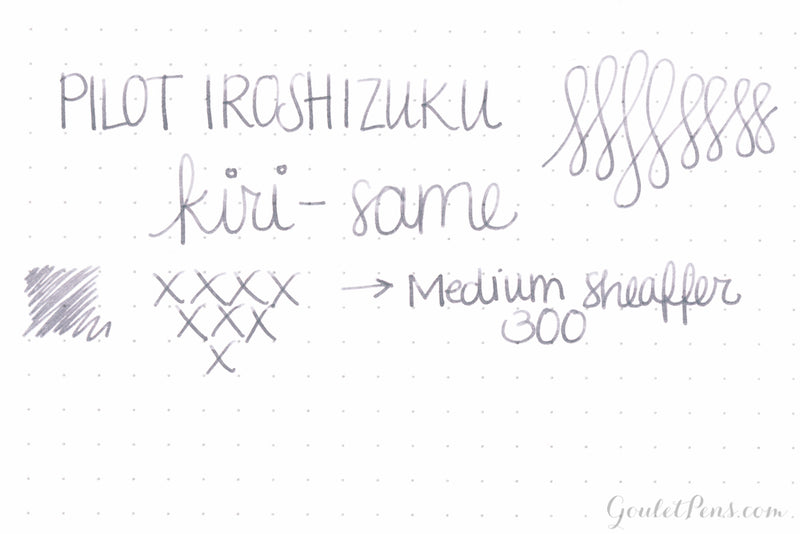 PILOT IROSHIZUKU
kiri-same
XXXX → Medium Sheaffer
XXX 300
X
GouletPens.com